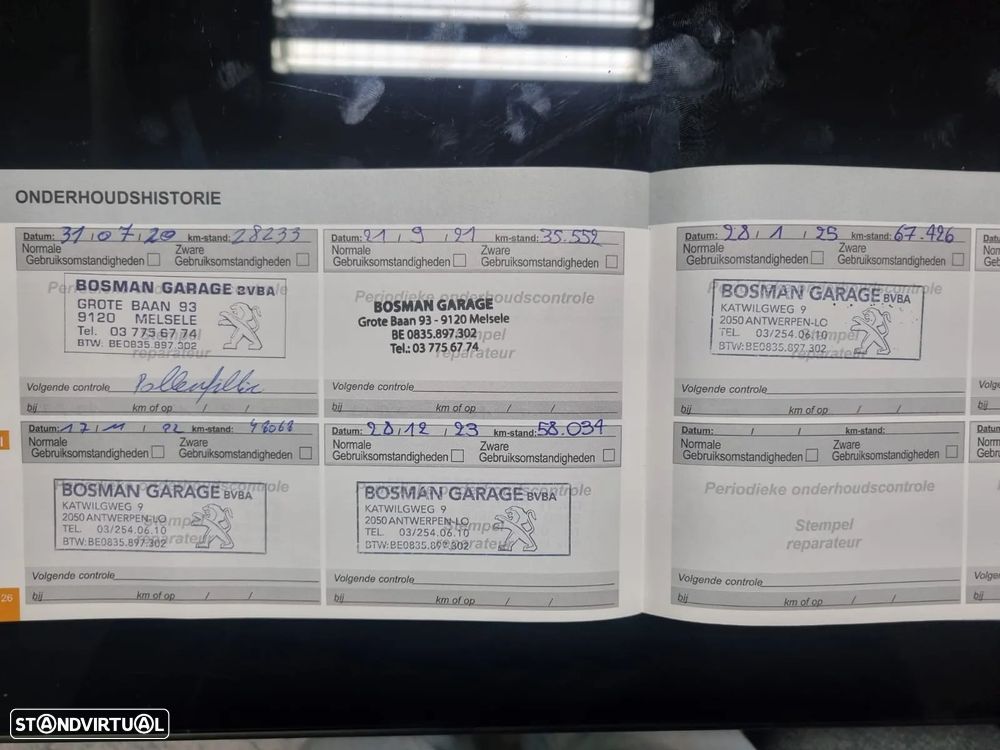 ONDERHOUDSHISTORIE
Datum: 31/07/20 km-stand: 28233
Normale
Gebruiksomstandigheden
Zware
Gebruiksomstandigheden
Periodieke onderhoudscontrole
BOSMAN GARAGE BVBA
GROTE BAAN 93
9120 MELSELE
Tel. 03 775.67 74
BTW: BE0835.897.302
Stempel
reparateur
Volgende controle
bij km of op / /
Datum: 21/9/21 km-stand: 35.552
Normale
Gebruiksomstandigheden
Zware
Gebruiksomstandigheden
Periodieke onderhoudscontrole
BOSMAN GARAGE
Grote Baan 93 - 9120 Melsele
BE 0835.897.302
Tel.: 03 775 67 74
Stempel
reparateur
Volgende controle
bij km of op / /
Datum: 28/1/25 km-stand: 67.426
Normale
Gebruiksomstandigheden
Zware
Gebruiksomstandigheden
Periodieke onderhoudscontrole
BOSMAN GARAGE BVBA
KATWILGWEG 9
2050 ANTWERPEN-LO
TEL. 03/254.06.10
BTW.:BE0835.897.302
Stempel
reparateur
Volgende controle
bij km of op / /
Datum: 17/11/22 km-stand:
Normale
Gebruiksomstandigheden
Zware
Gebruiksomstandigheden
Periodieke onderhoudscontrole
BOSMAN GARAGE BVBA
KATWILGWEG 9
2050 ANTWERPEN-LO
TEL. 03/254.06.10
BTW.:BE0835.897.302
Stempel
reparateur
Volgende controle
bij km of op / /
Datum: 28/12/23 km-stand: 58.034
Normale
Gebruiksomstandigheden
Zware
Gebruiksomstandigheden
Periodieke onderhoudscontrole
BOSMAN GARAGE BVBA
KATWILGWEG 9
2050 ANTWERPEN-LO
TEL. 03/254.06.10
BTW.:BE0835.897.302
Stempel
reparateur
Volgende controle
bij km of op / /
Datum: / / km-stand:
Normale
Gebruiksomstandigheden
Zware
Gebruiksomstandigheden
Periodieke onderhoudscontrole
Stempel
reparateur
Volgende controle
bij km of op / /
26
STANDVIRTUAL